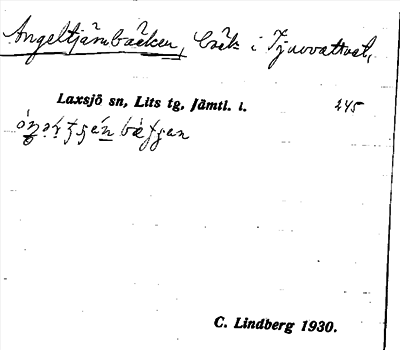 Angeltjärnbäcken, bäck i Tjuvvattnet,
Laxsjö sn, Lits tg, Jämtl. l. 245
C. Lindberg 1930.